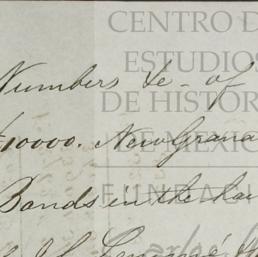 CENTRO D
ESTUDIOS
DE HISTOR
DE MÉXICO
FUNDACI
Numbers &c - of
£10000. New Grana
Bonds in the ha